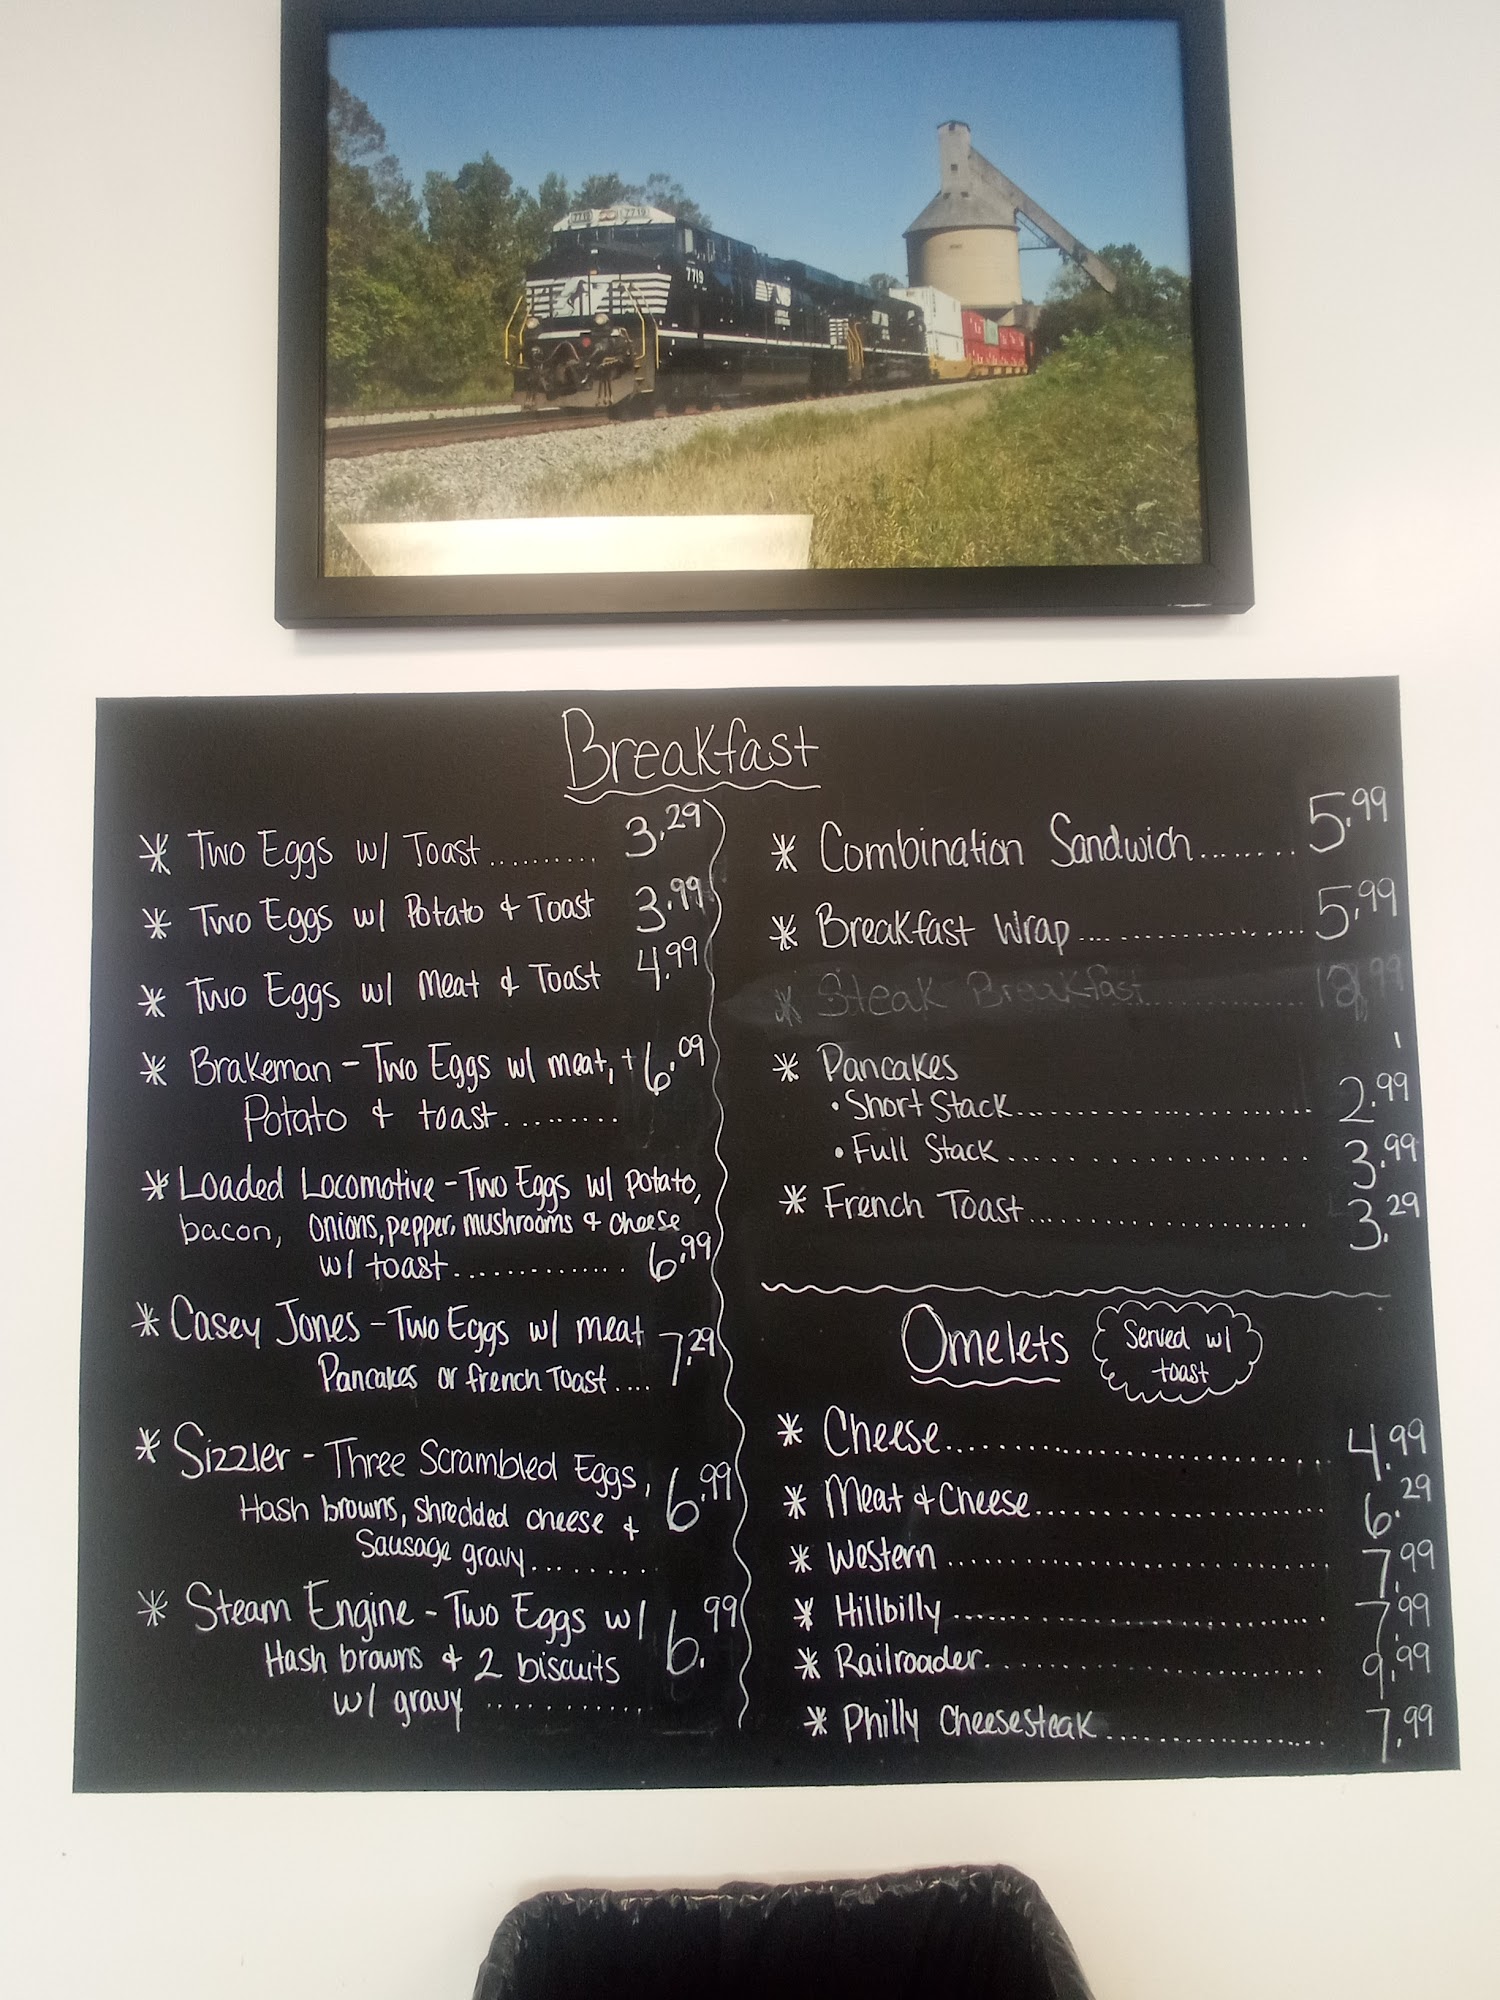 7719
7719
7719
Breakfast
* Two Eggs w/ Toast.......... 3.29
* Two Eggs w/ Potato & Toast 3.99
* Two Eggs w/ Meat & Toast 4.99
* Brakeman - Two Eggs w/ meat, + 6.09
Potato & toast.........
* Loaded Locomotive - Two Eggs w/ potato,
bacon, onions, pepper, mushrooms & cheese
w/ toast.............. 6.99
* Casey Jones - Two Eggs w/ meat 7.29
Pancakes or french Toast....
* Sizzler - Three Scrambled Eggs, 6.99
Hash browns, shredded cheese &
Sausage gravy.........
* Steam Engine - Two Eggs w/ 6.99
Hash browns & 2 biscuits
w/ gravy ...........
* Combination Sandwich........ 5.99
* Breakfast Wrap.................. 5.99
* Steak Breakfast..............
* Pancakes
• Short Stack........................ 2.99
• Full Stack.................. 3.99
* French Toast...................... 3.29
Omelets
Served w/
toast
* Cheese.............................. 4.99
* Meat & Cheese....................... 6.29
* Western.............................. 7.99
* Hillbilly.............................. 7.99
* Railroader........................... 9.99
* Philly Cheesesteak.................. 7.99